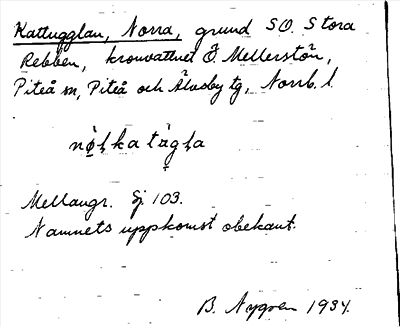 Kattugglan, Norra, grund SO. Stora
Rebben, kronvattnet Ö. Mellerstön,
Piteå sn, Piteå och Älvsby tg, Norrb. l.
Mellangr. Sj 103.
Namnets uppkomst obekant.
B. Nygren 1934.